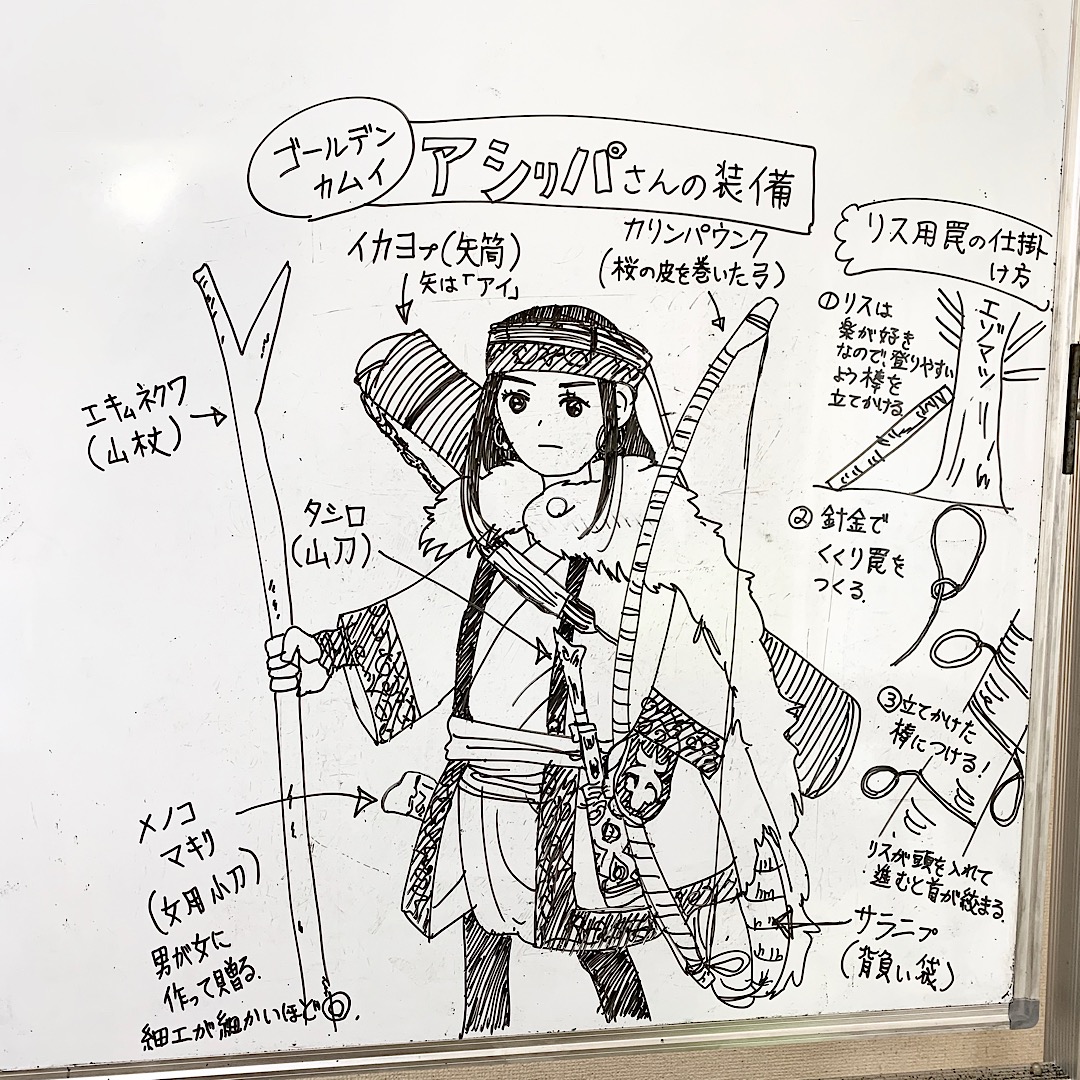 ゴールデン
カムイ
アシリパさんの装備
イカヨプ(矢筒)
矢は「アイ」
カリンパウンク
(桜の皮を巻いた弓)
エキムネクワ
(山杖)
タシロ
(山刀)
メノコ
マキリ
(女用小刀)
男が女に
作って贈る.
細工が細かいほど◎.
サラニプ
(背負い袋)
リス用罠の仕掛
け方
①リスは
楽が好き
なので、登りやすい
よう棒を
立てかける.
エゾマツ
②針金で
くくり罠を
つくる.
③立てかけた
棒につける!
リスが頭を入れて
進むと首が絞まる.